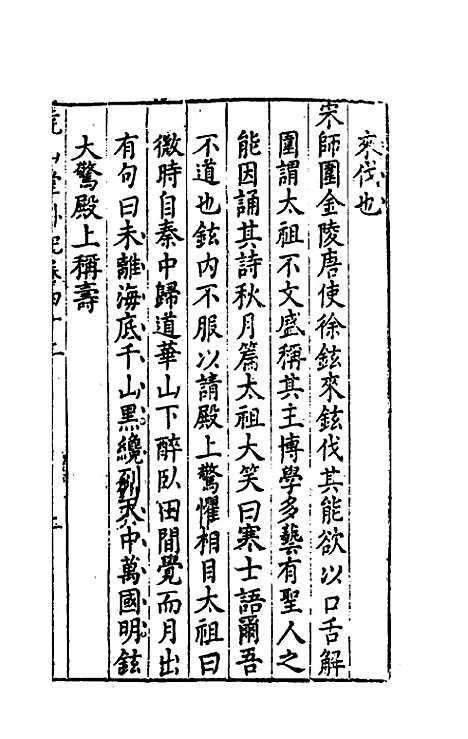 來伐也
宋師圍金陵唐使徐鉉來鉉伐其能欲以口舌解
圍謂太祖不文盛稱其主博學多藝有聖人之
能因誦其詩秋月篇太祖大笑曰寒士語爾吾
不道也鉉内不服以請殿上驚懼相目太祖曰
微時自秦中歸道華山下醉臥田間覺而月出
有句曰未離海底千山黑纔到天中萬國明鉉
大驚殿上稱壽
堯山堂外紀卷四十二